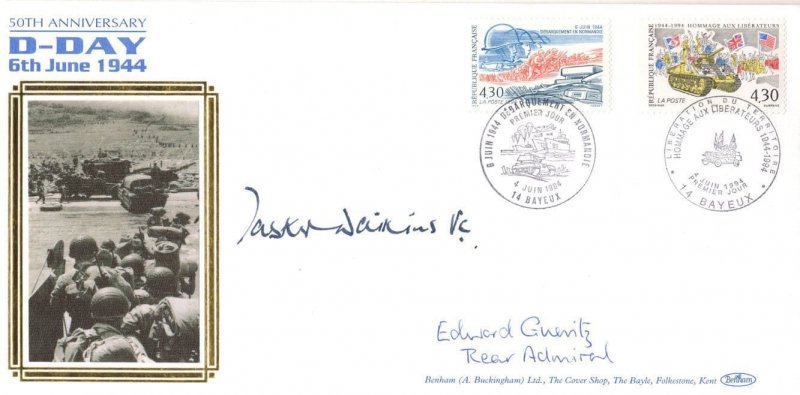 50TH ANNIVERSARY
D-DAY
6th June 1944
6 JUIN 1944
DÉBARQUEMENT EN NORMANDIE
RÉPUBLIQUE FRANÇAISE
4,30
LA POSTE
1944-1994 HOMMAGE AUX LIBÉRATEURS
RÉPUBLIQUE FRANÇAISE
LA POSTE
4,30
6 JUIN 1944 DÉBARQUEMENT EN NORMANDIE
PREMIER JOUR
4 JUIN 1994
14 BAYEUX
LIBÉRATION DU TERRITOIRE
HOMMAGE AUX LIBÉRATEURS 1944-1994
4 JUIN 1994
PREMIER JOUR
14 BAYEUX
Tasker Watkins VC.
Edward Gueritz
Rear Admiral
Benham (A. Buckingham) Ltd., The Cover Shop, The Bayle, Folkestone, Kent
Benham